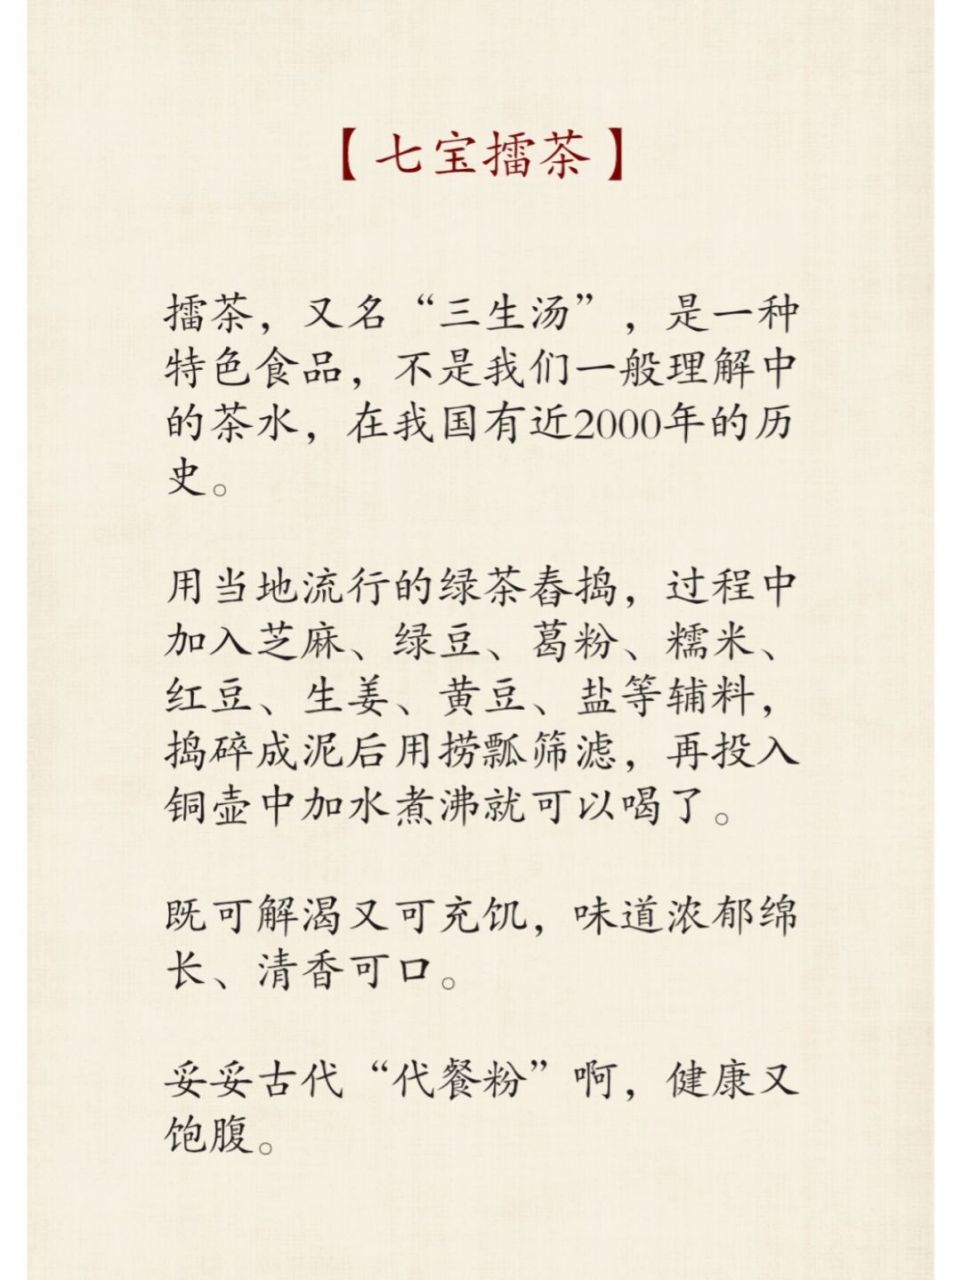 【七宝擂茶】
擂茶，又名“三生汤”，是一种
特色食品，不是我们一般理解中
的茶水，在我国有近2000年的历
史。
用当地流行的绿茶舂捣，过程中
加入芝麻、绿豆、葛粉、糯米、
红豆、生姜、黄豆、盐等辅料，
捣碎成泥后用捞瓢筛滤，再投入
铜壶中加水煮沸就可以喝了。
既可解渴又可充饥，味道浓郁绵
长、清香可口。
妥妥古代“代餐粉”啊，健康又
饱腹。